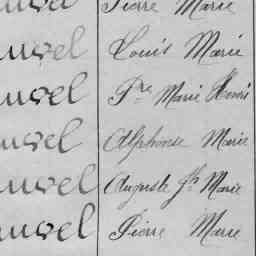 Pierre Marie
uvel Louis Marie
uvel Pre Marie Henri
uvel Alphonse Marie
uvel Auguste Jh Marie
uvel Pierre Marie